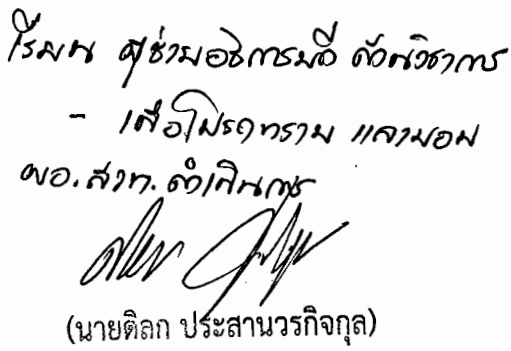 เรียน ผู้ช่วยอธิการบดี ด้านวิชาการ
- เพื่อโปรดทราบ และมอบ
ผอ.สวท. ดำเนินการ
(นายดิลก ประสานวรกิจกุล)